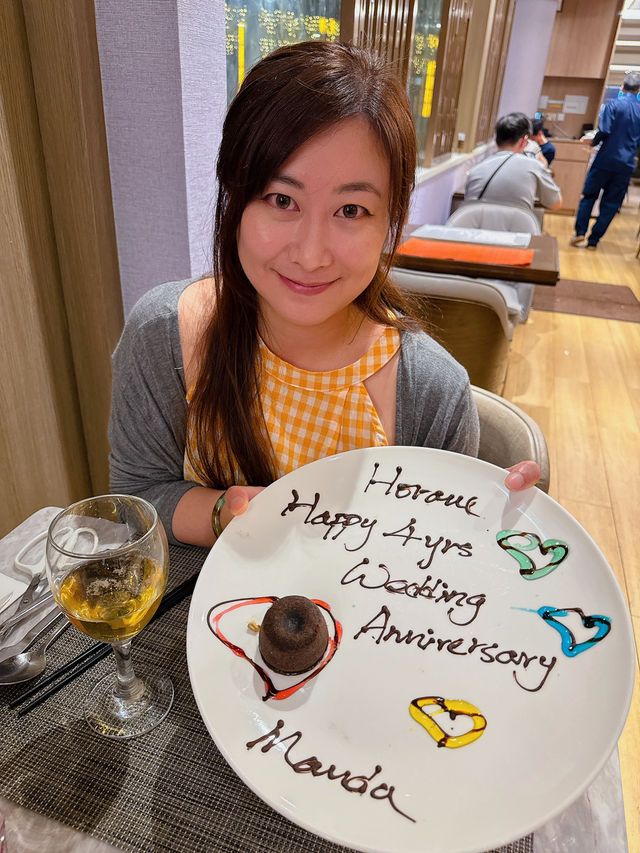 Horace
Happy 4 yrs
Wedding
Anniversary
Manda